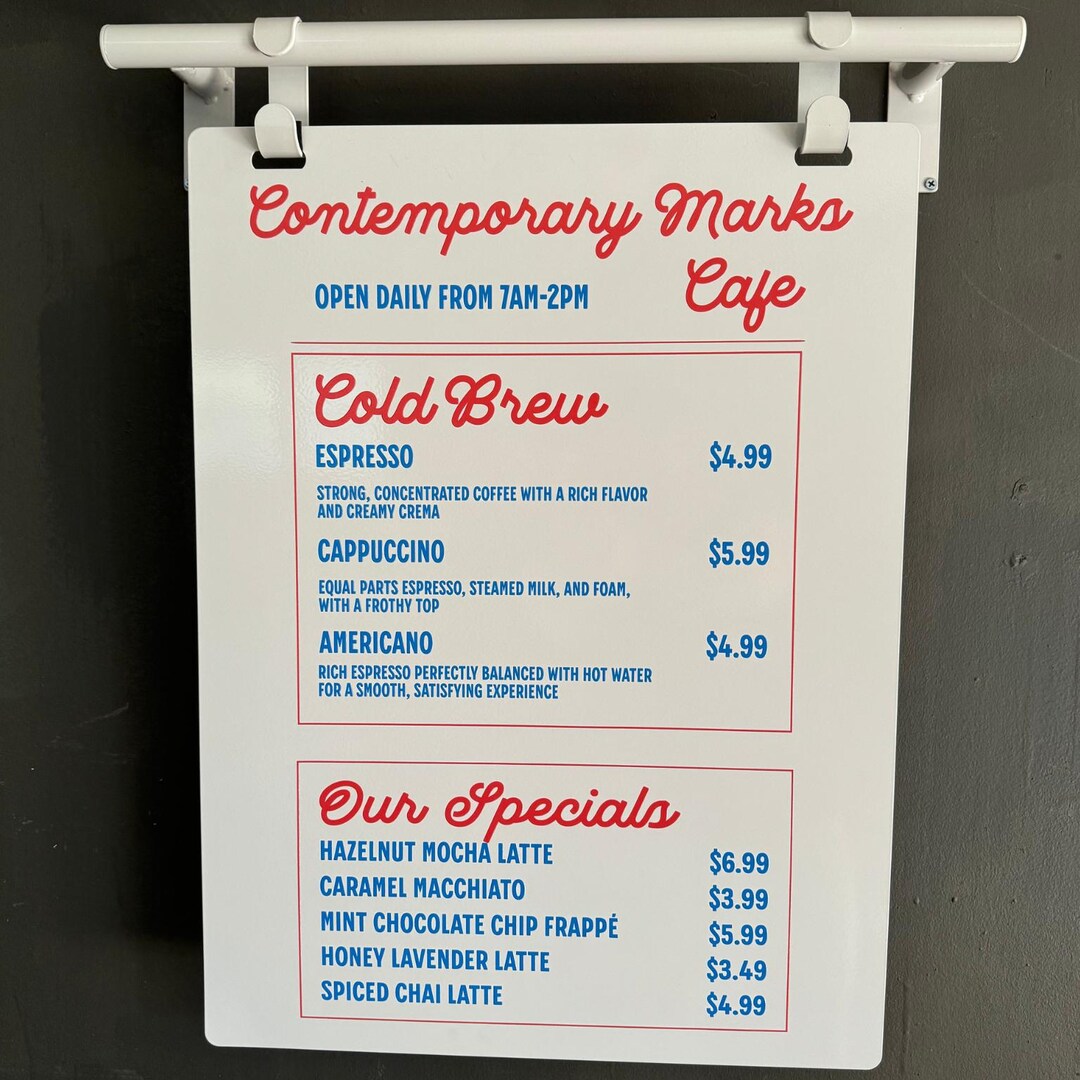 Contemporary Marks
Cafe
OPEN DAILY FROM 7AM-2PM
Cold Brew
ESPRESSO $4.99
STRONG, CONCENTRATED COFFEE WITH A RICH FLAVOR
AND CREAMY CREMA
CAPPUCCINO $5.99
EQUAL PARTS ESPRESSO, STEAMED MILK, AND FOAM,
WITH A FROTHY TOP
AMERICANO $4.99
RICH ESPRESSO PERFECTLY BALANCED WITH HOT WATER
FOR A SMOOTH, SATISFYING EXPERIENCE
Our Specials
HAZELNUT MOCHA LATTE $6.99
CARAMEL MACCHIATO $3.99
MINT CHOCOLATE CHIP FRAPPÉ $5.99
HONEY LAVENDER LATTE $3.49
SPICED CHAI LATTE $4.99